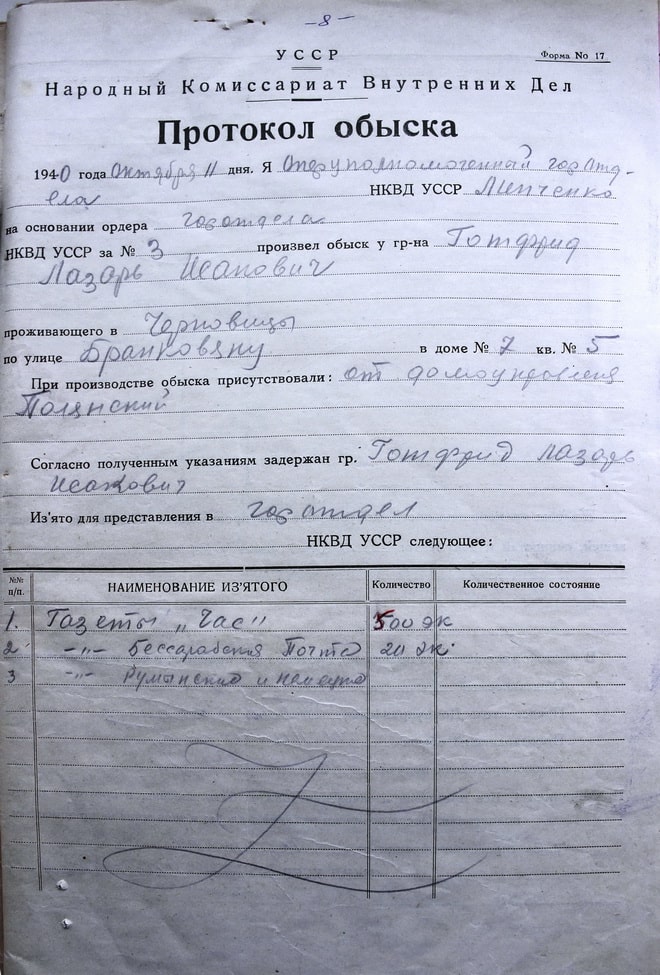 -8-
УССР
Форма No 17
Народный Комиссариат Внутренних Дел
Протокол обыска
1940 года октября 11 дня. Я Оперуполномоченный горотд-
ела НКВД УССР Линченко
на основании ордера горотдела
НКВД УССР за № 3 произвел обыск у гр-на Готфрид
Лазарь Исакович
проживающего в Черновицы
по улице Бранковяну в доме № 7 кв. № 5
При производстве обыска присутствовали: от домоуправления
Полянский
Согласно полученным указаниям задержан гр. Готфрид Лазарь
Исакович
Из'ято для представления в горотдел
НКВД УССР следующее:
№№ п/п. НАИМЕНОВАНИЕ ИЗ'ЯТОГО Количество Количественное состояние
1. Газеты „Час" 500 эк
2 -„- Бессарабская Почта 20 эк.
3 -„- Румынские и